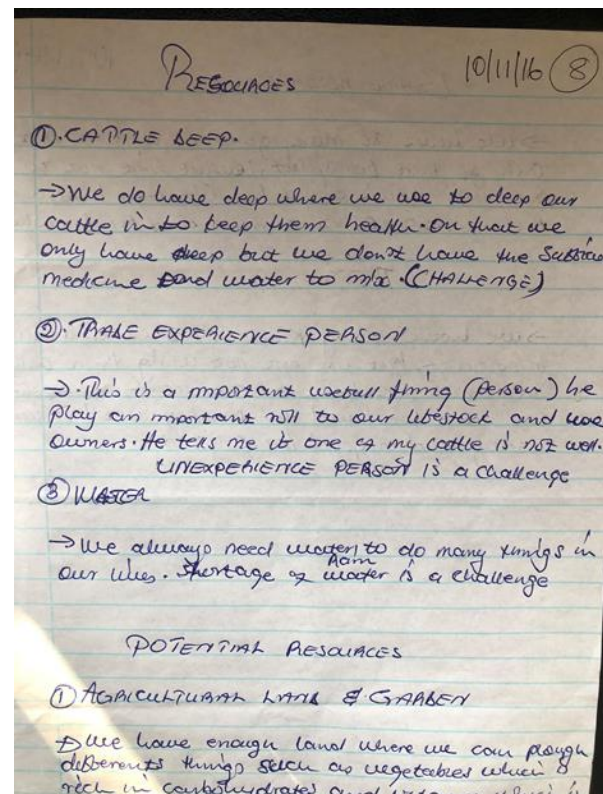 RESOURCES 10/11/16 8
①. CATTLE DEEP.
→ We do have deep where we use to deep our
cattle in to keep them health. On that we
only have deep but we don't have the
medicine and water to mix. (CHALLENGE)
②. TRADE EXPERIENCE PERSON
→. This is a important usefull thing (person) he
play an important roll to our livestock and
owners. He tells me if one of my cattle is not well.
UNEXPERIENCE PERSON is a challenge
③ WATER
→ We always need water to do many things in
our lives. Shortage of Rain water is a challenge
POTENTIAL RESOURCES
① AGRICULTURAL LAND & GARDEN
→ We have enough land where we can plough
differents things such as vegetables which is
rich in carbohydrates and